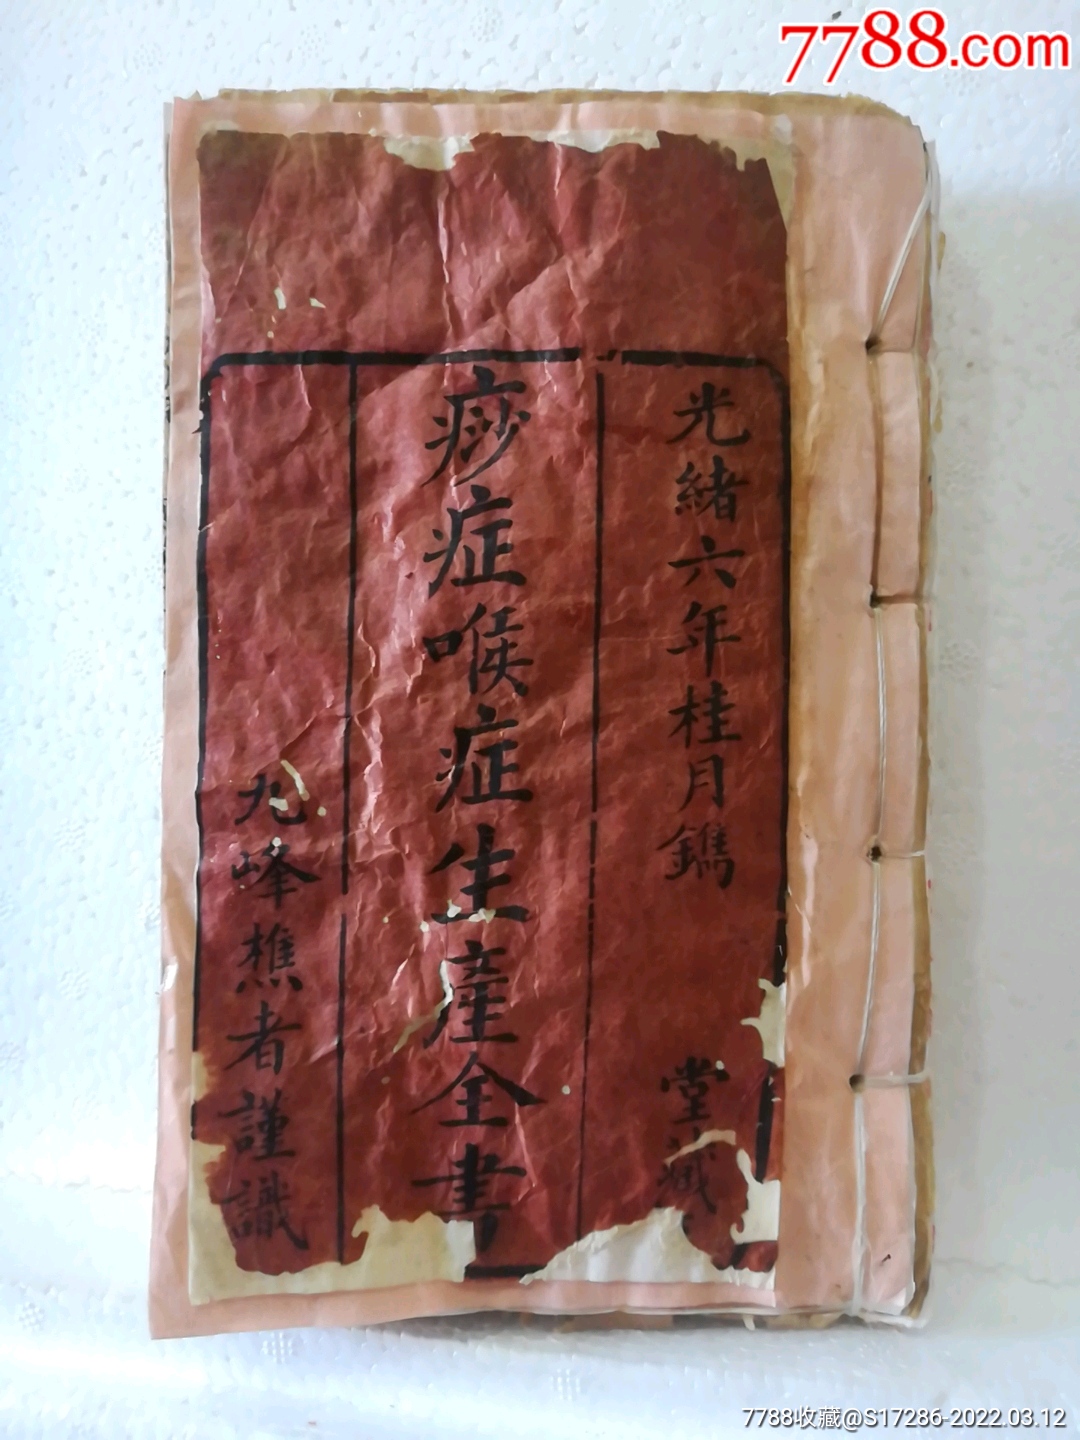 7788.com
光緒六年桂月鐫
堂藏
痧症喉症生產全書
九峰樵者謹識
7788收藏@S17286-2022.03.12